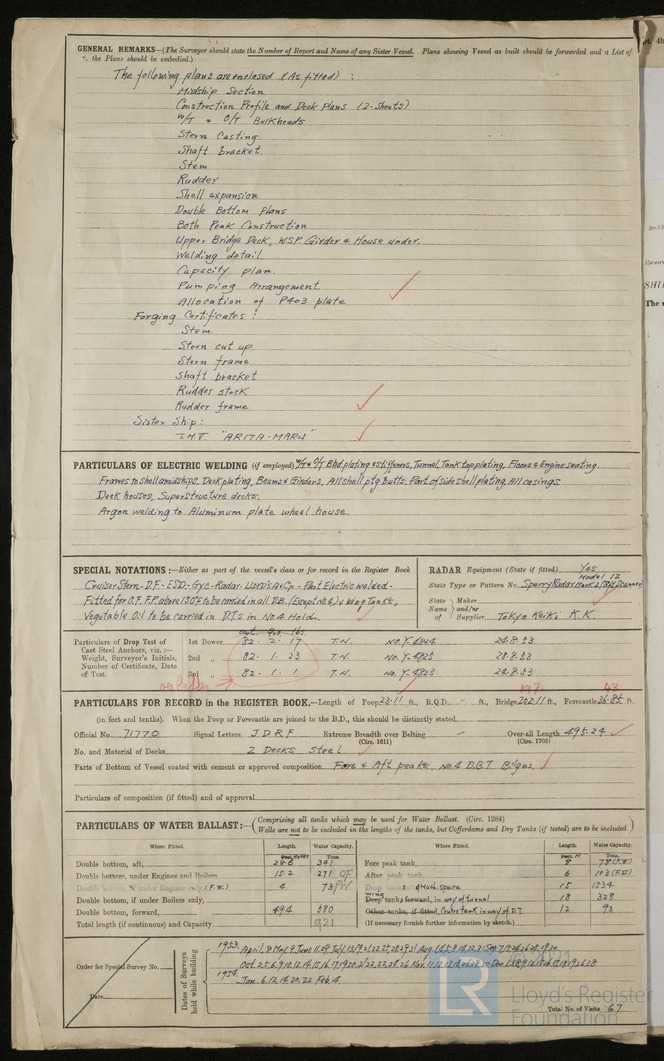 GENERAL REMARKS—(The Surveyor should state the Number of Report and Name of any Sister Vessel. Plans showing Vessel as built should be forwarded and a List of
the Plans should be embodied.)
The following plans are enclosed (As fitted) :
Midship Section
Construction Profile and Deck Plans (2-Sheets)
W/T & O/T Bulkheads
Stern Casting
Shaft bracket.
Stem
Rudder
Shell expansion
Double Bottom Plans
Both Peak Construction
Upper Bridge Deck, W.S.P. Girder & House under.
Welding detail.
Capacity plan.
Pumping Arrangement
Allocation of P403 plate
Forging Certificates :
Stem
Stern cut up
Stern frame
Shaft bracket
Rudder stock
Rudder frame
Sister Ship :
"ARITA-MARU"
PARTICULARS OF ELECTRIC WELDING (if employed) W/T & O/T Bhd plating & stiffeners, Tunnel, Tank top plating, Floors & Engine seating.
Frames to shell amidships, Deck plating, Beams & Girders, All shell ptg butts. Part of side shell plating, All casings
Deck houses, Superstructure decks.
Argon welding to Aluminum plate wheel house.
SPECIAL NOTATIONS:—Either as part of the vessel's class or for record in the Register Book
Cruiser Stern - D.F. - ESD - Gyc - Radar - Lloyd's A & Cp - Part Electric welded -
Fitted for O.F. F.P. above 150°F to be carried in all D.B. (Except No.4) & Wing Tanks,
Vegetable Oil to be carried in D.Ts in No.4 Hold.
RADAR Equipment (State if fitted) Yes
Model 12
State Type or Pattern No. Sperry Radar Mark 2
State Name of Maker and/or Supplier Tokyo Keiki K.K.
Particulars of Drop Test of Cast Steel Anchors, viz.:— Weight, Surveyor's Initials, Number of Certificate, Date of Test.
cwt. qrs. lbs.
1st Bower 82 . 2 . 17 T.N. No. Y-4824 28.8.53
2nd „ 82 . 1 . 23 T.N. No. Y-4825 28.8.53
3rd „ 82 . 1 . 1 T.N. No. Y-4823 28.8.53
PARTICULARS FOR RECORD in the REGISTER BOOK.—Length of Poop 33.11 ft., R.Q.D. - ft., Bridge 202.11 ft., Forecastle 36.85 ft.
197 43
(in feet and tenths). When the Poop or Forecastle are joined to the B.D., this should be distinctly stated.
Official No. 71770 Signal Letters J D R F Extreme Breadth over Belting - (Circ. 1611) Over-all Length 495.24 (Circ. 1703)
No. and Material of Decks 2 Decks Steel
Parts of Bottom of Vessel coated with cement or approved composition Fore & Aft peaks, No.4 D.B.T. Bilges.
Particulars of composition (if fitted) and of approval
PARTICULARS OF WATER BALLAST:—(Comprising all tanks which may be used for Water Ballast. (Circ. 1284)
Wells are not to be included in the lengths of the tanks, but Cofferdams and Dry Tanks (if tested) are to be included.)
Where Fitted. Length. Water Capacity. Where Fitted. Length. Water Capacity.
Feet. Meter Tons. Feet. M. Tons.
Double bottom, aft, 28.6 341 Fore peak tank, 8 78 (F.W.)
Double bottom, under Engines and Boilers 15.2 271 OF After peak tank 6 103 (F.W.)
Double bottom, if under Engines only (F.W.) 4 73 FW Deep tank 15 1534
Double bottom, if under Boilers only, Wing Deep tanks forward, in way of tunnel 18 328
Double bottom, forward, 49.4 580 Other tanks, if fitted, Centre Tank in way of D.T. 12 93
Total length (if continuous) and Capacity 921 (If necessary furnish further information by sketch.)
Order for Special Survey No.
Date
Dates of Surveys held while building
1953.
1954.
Jan. 6. 12. 14. 20. 22 Feb 4
Total No. of Visits 67
LR
Lloyd's Register
Foundation